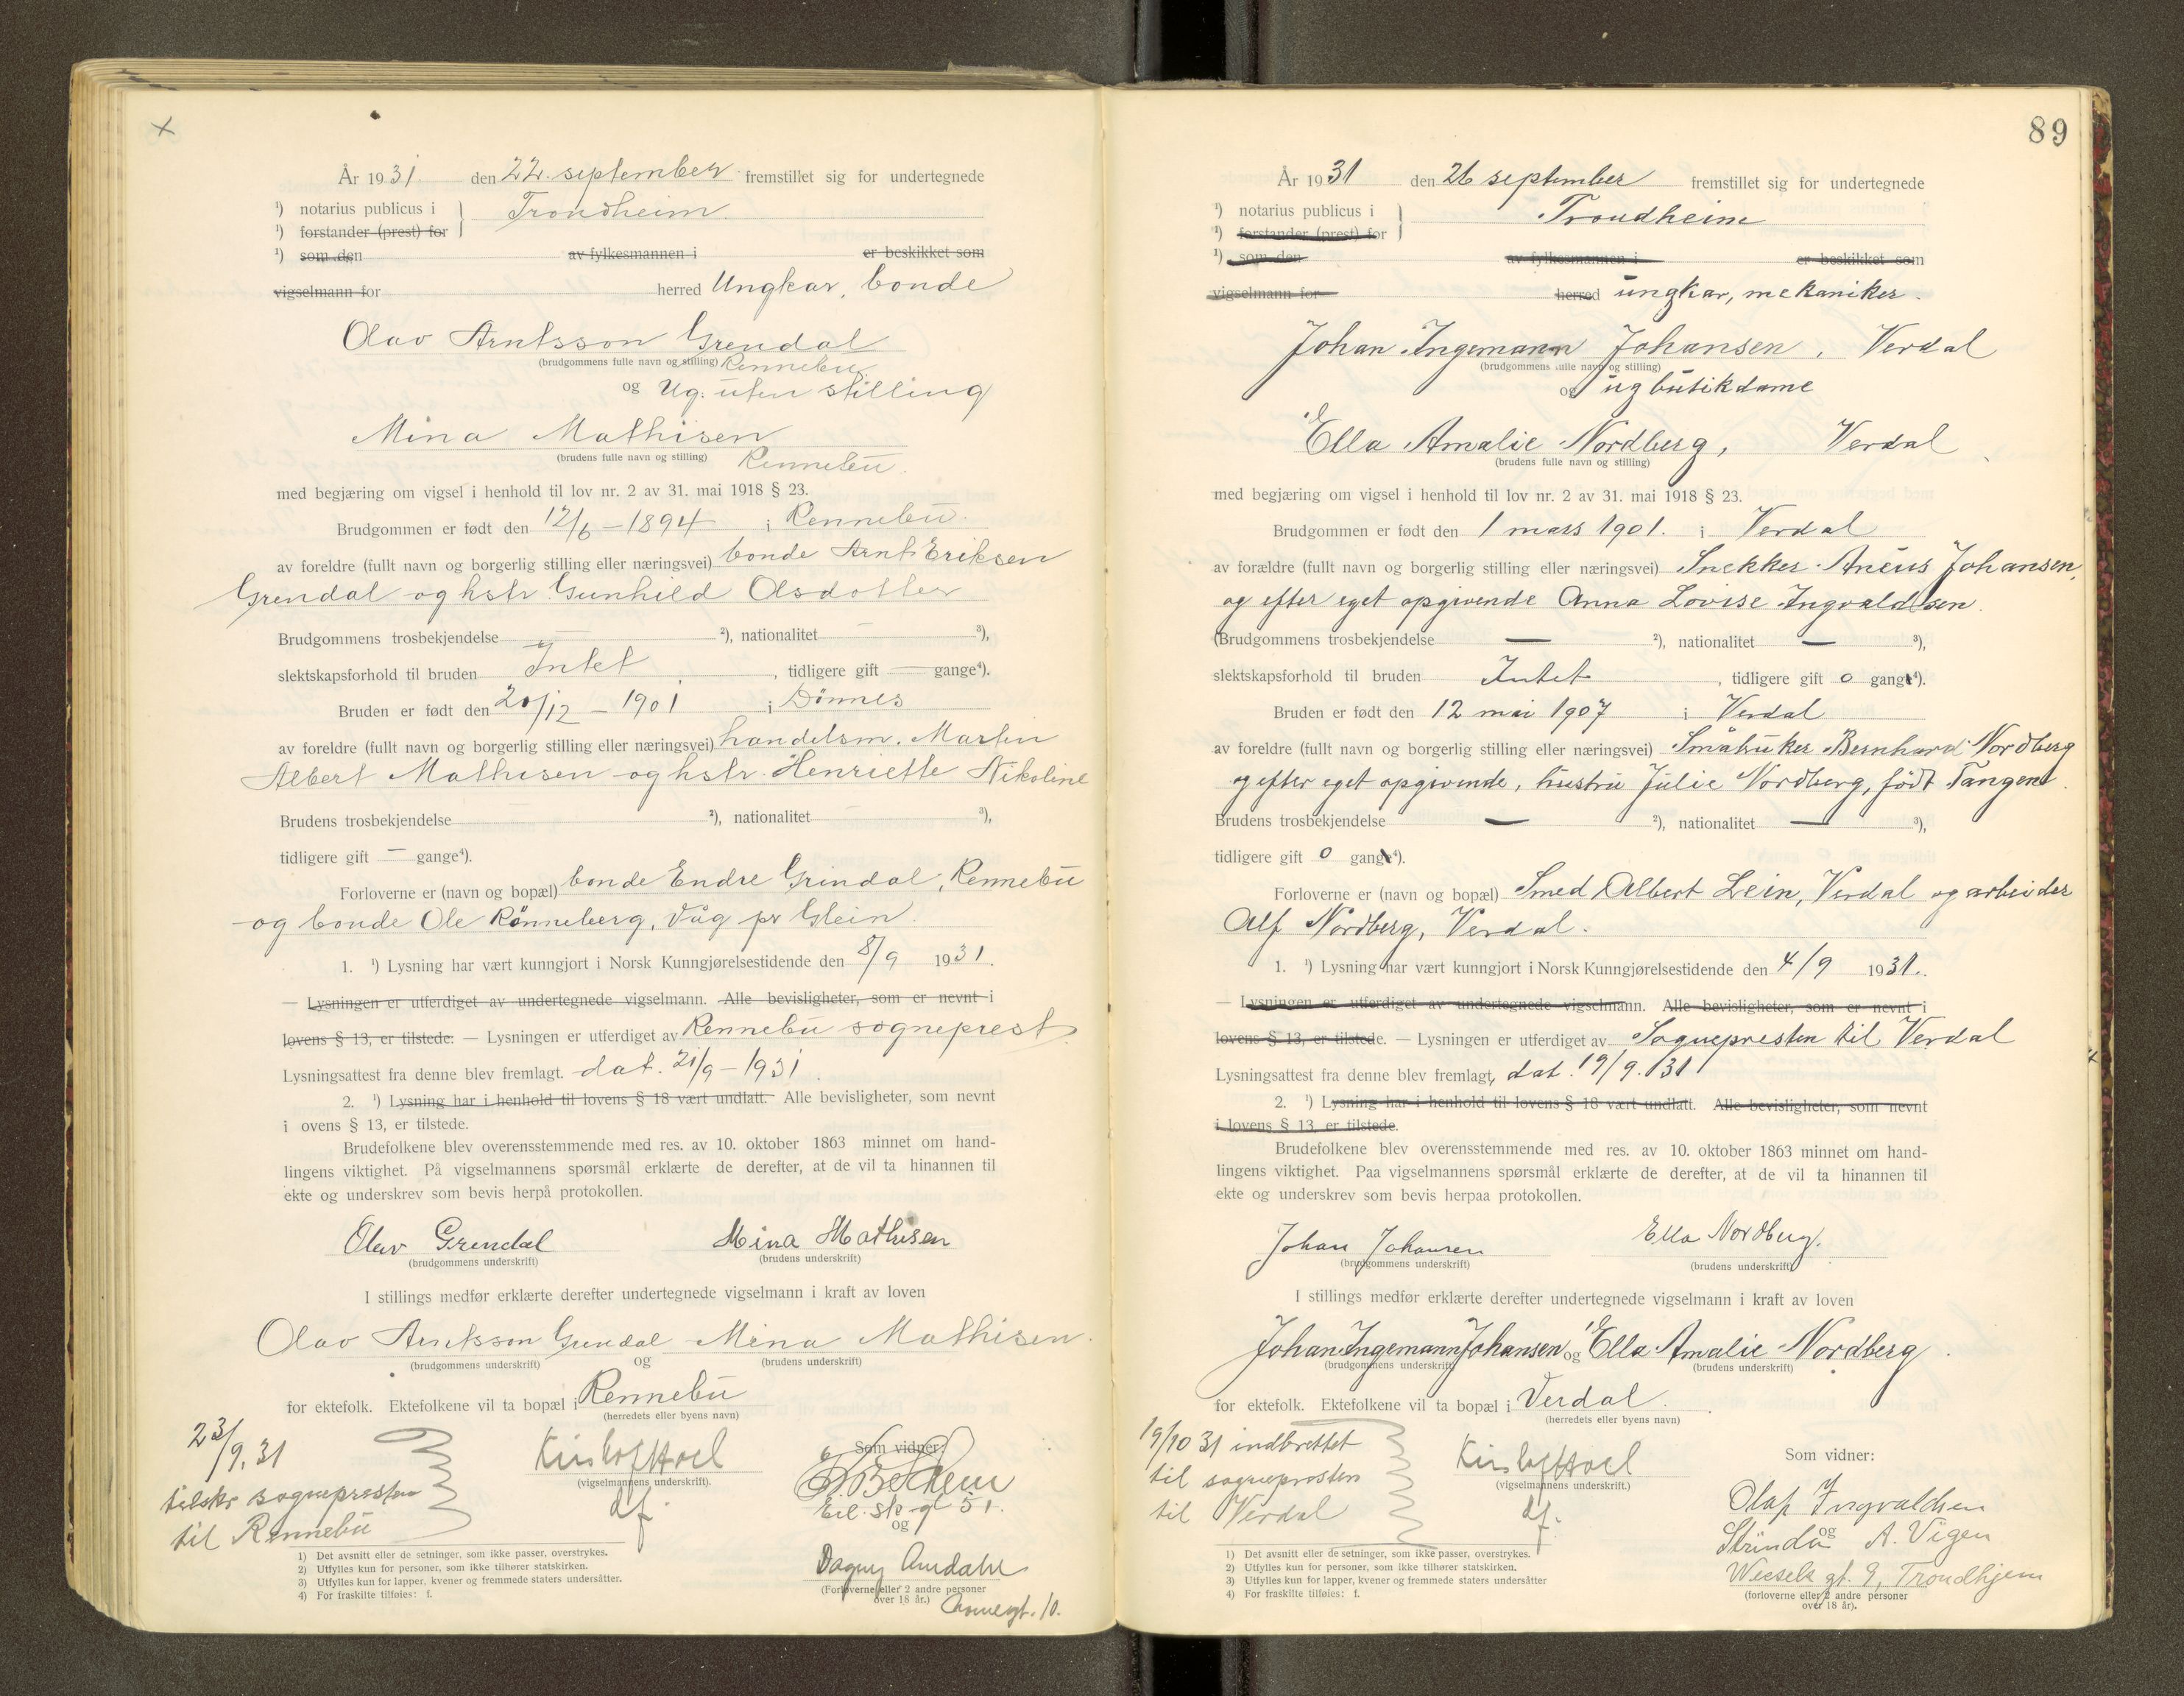 År 1931. den 22. september fremstillet sig for undertegnede
¹) notarius publicus i } Trondheim.
¹) forstander (prest) for
¹) som den av fylkesmannen i er beskikket som
vigselmann for herred Ungkar, bonde
Olav Arntsson Grendal
(brudgommens fulle navn og stilling) Rennebu
og Ug. uten stilling
Mina Mathisen
(brudens fulle navn og stilling) Rennebu.
med begjæring om vigsel i henhold til lov nr. 2 av 31. mai 1918 § 23.
Brudgommen er født den 12/6 – 1894 i Rennebu.
av foreldre (fullt navn og borgerlig stilling eller næringsvei) bonde Arnt Eriksen
Grendal og hstr. Gunhild Olsdotter
Brudgommens trosbekjendelse — ²), nationalitet — ³),
slektskapsforhold til bruden Intet, tidligere gift — gange⁴).
Bruden er født den 20/12 – 1901 i Dønnes
av foreldre (fullt navn og borgerlig stilling eller næringsvei) handelsm. Martin
Albert Mathisen og hstr. Henriette Nikoline
Brudens trosbekjendelse ²), nationalitet ³),
tidligere gift — gange⁴).
Forloverne er (navn og bopæl) bonde Endre Grindal, Rennebu
og bonde Ole Rønneberg, Våg pr Glein.
1. ¹) Lysning har vært kunngjort i Norsk Kunngjørelsestidende den 8/9 1931.
— Lysningen er utferdiget av undertegnede vigselmann. Alle bevisligheter, som er nevnt i
lovens § 13, er tilstede. — Lysningen er utferdiget av Rennebu sogneprest
Lysningsattest fra denne blev fremlagt. dat. 21/9 – 1931.
2. ¹) Lysning har i henhold til lovens § 18 vært undlatt. Alle bevisligheter, som nevnt
i ovens § 13, er tilstede.
Brudefolkene blev overensstemmende med res. av 10. oktober 1863 minnet om hand-
lingens viktighet. På vigselmannens spørsmål erklærte de derefter, at de vil ta hinannen til
ekte og underskrev som bevis herpå protokollen.
Olav Grendal Mina Mathisen
(brudgommens underskrift) (brudens underskrift)
I stillings medfør erklærte derefter undertegnede vigselmann i kraft av loven
Olav Arntsson Grendal Mina Mathisen.
(brudgommens underskrift) og (brudens underskrift)
for ektefolk. Ektefolkene vil ta bopæl i Rennebu
(herredets eller byens navn)
23/9. 31
tilskr sognepresten
til Rennebu
(vigselmannens underskrift).
df.
Som vidner:
og
Dagny Amdahl
(Forloverne eller 2 andre personer
over 18 år.)
1) Det avsnitt eller de setninger, som ikke passer, overstrykes.
2) Utfylles kun for personer, som ikke tilhører statskirken.
3) Utfylles kun for lapper, kvener og fremmede staters undersåtter.
4) For fraskilte tilføies: f.
89
År 1931 den 26 september fremstillet sig for undertegnede
¹) notarius publicus i } Trondheim
¹) forstander (prest) for
¹) som den av fylkesmannen i er beskikket som
vigselmann for herred ungkar, mekaniker.
Johan Ingemann Johansen, Verdal
(brudgommens fulle navn og stilling)
og ug butikdame
Ella Amalie Nordberg, Verdal
(brudens fulle navn og stilling)
med begjæring om vigsel i henhold til lov nr. 2 av 31. mai 1918 § 23.
Brudgommen er født den 1 mars 1901. i Verdal
av forældre (fullt navn og borgerlig stilling eller næringsvei) Snekker Aneus Johansen,
og efter eget opgivende Anna Lovise Ingvaldsen.
(Brudgommens trosbekjendelse — ²), nationalitet — ³),
slektskapsforhold til bruden Intet, tidligere gift 0 gang⁴).
Bruden er født den 12 mai 1907 i Verdal
av foreldre (fullt navn og borgerlig stilling eller næringsvei) Småbruker Bernhard Nordberg
og efter eget opgivende, hustru Julie Nordberg, født Tangen.
Brudens trosbekjendelse — ²), nationalitet — ³),
tidligere gift 0 gang⁴).
Forloverne er (navn og bopæl) Smed Albert Lein, Verdal og arbeider
Alf Nordberg, Verdal.
1. ¹) Lysning har vært kunngjort i Norsk Kunngjørelsestidende den 4/9 1931.
— Lysningen er utferdiget av undertegnede vigselmann. Alle bevisligheter, som er nevnt i
lovens § 13, er tilstede. — Lysningen er utferdiget av Sognepresten til Verdal
Lysningsattest fra denne blev fremlagt, dat. 19/9. 31
2. ¹) Lysning har i henhold til lovens § 18 vært undlatt. Alle bevisligheter, som nevnt
i lovens § 13, er tilstede.
Brudefolkene blev overensstemmende med res. av 10. oktober 1863 minnet om hand-
lingens viktighet. Paa vigselmannens spørsmål erklærte de derefter, at de vil ta hinannen til
ekte og underskrev som bevis herpaa protokollen.
Johan Johansen Ella Nordberg.
(brudgommens underskrift) (brudens underskrift)
I stillings medfør erklærte derefter undertegnede vigselmann i kraft av loven
Johan Ingemann Johansen og Ella Amalie Nordberg.
(brudgommens underskrift) (brudens underskrift)
for ektefolk. Ektefolkene vil ta bopæl i Verdal.
(herredets eller byens navn)
19/10 31 indberettet
til sognepresten
til Verdal
(vigselmannens underskrift.)
df.
Som vidner:
Olaf Ingvaldsen
Strinda og A. Vigen
Wessels gt. 9, Trondhjem
(forloverne eller 2 andre personer
over 18 år).
1) Det avsnitt eller de setninger, som ikke passer, overstrykes.
2) Utfylles kun for personer, som ikke tilhører statskirken.
3) Utfylles kun for lapper, kvener og fremmede staters undersåtter
4) For fraskilte tilføies: f.